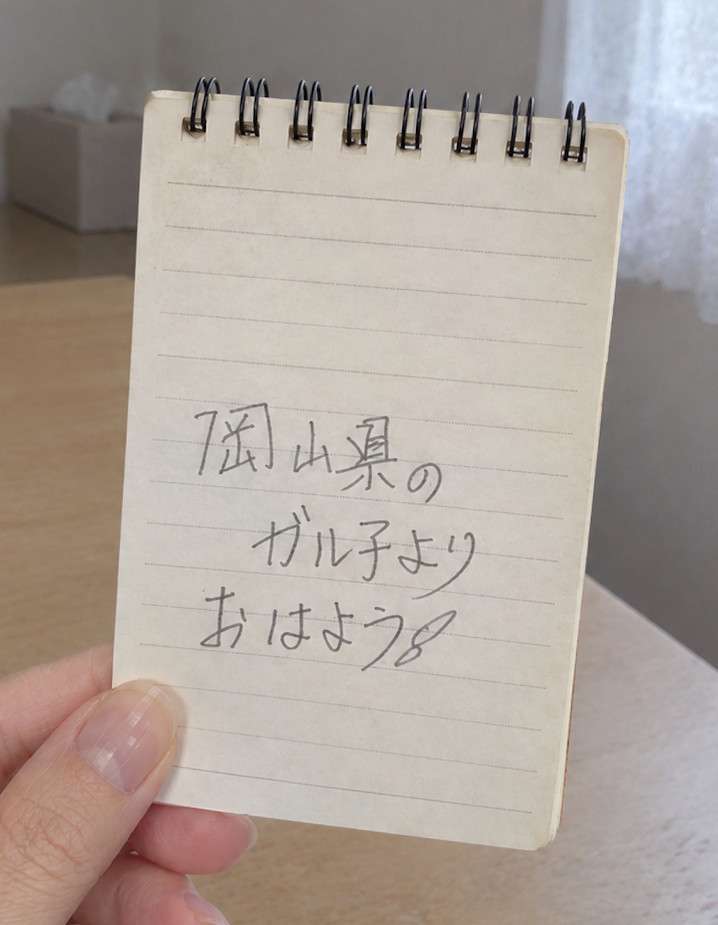 岡山県の
ガル子より
おはよう!